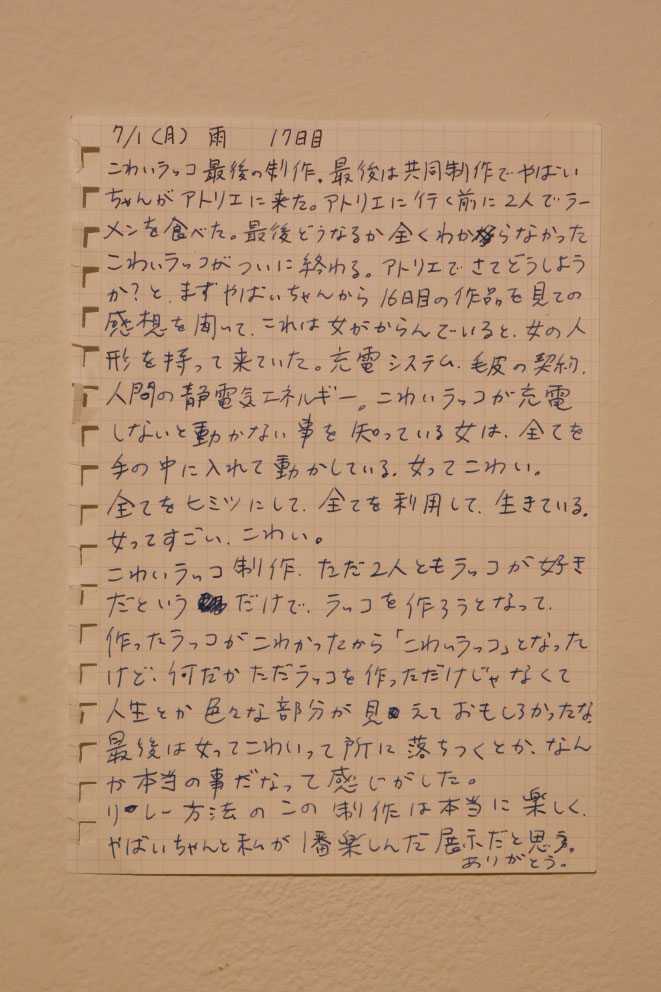 7/1(月) 雨 17日目
こわいラッコ最後の制作。最後は共同制作でやばい
ちゃんがアトリエに来た。アトリエに行く前に2人でラー
メンを食べた。最後どうなるか全くわからなかった
こわいラッコがついに終わる。アトリエでさてどうしよう
か?と、まずやばいちゃんから16日目の作品を見ての
感想を聞いて、これは女がからんでいると、女の人
形を持って来ていた。充電システム、毛皮の契約、
人間の静電気エネルギー。こわいラッコが充電
しないと動かない事を知っている女は、全てを
手の中に入れて動かしている。女ってこわい。
全てをヒミツにして、全てを利用して、生きている。
女ってすごい、こわい。
こわいラッコ制作、ただ2人ともラッコが好き
だというだけで、ラッコを作ろうとなって、
作ったラッコがこわかったから「こわいラッコ」となった
けど、何だかただラッコを作っただけじゃなくて
人生とか色々な部分が見えておもしろかったな
最後は女ってこわいって所に落ちつくとか、なん
か本当の事だなって感じがした。
リレー方法のこの制作は本当に楽しく、
やばいちゃんと私が1番楽しんだ展示だと思う。
ありがとう。